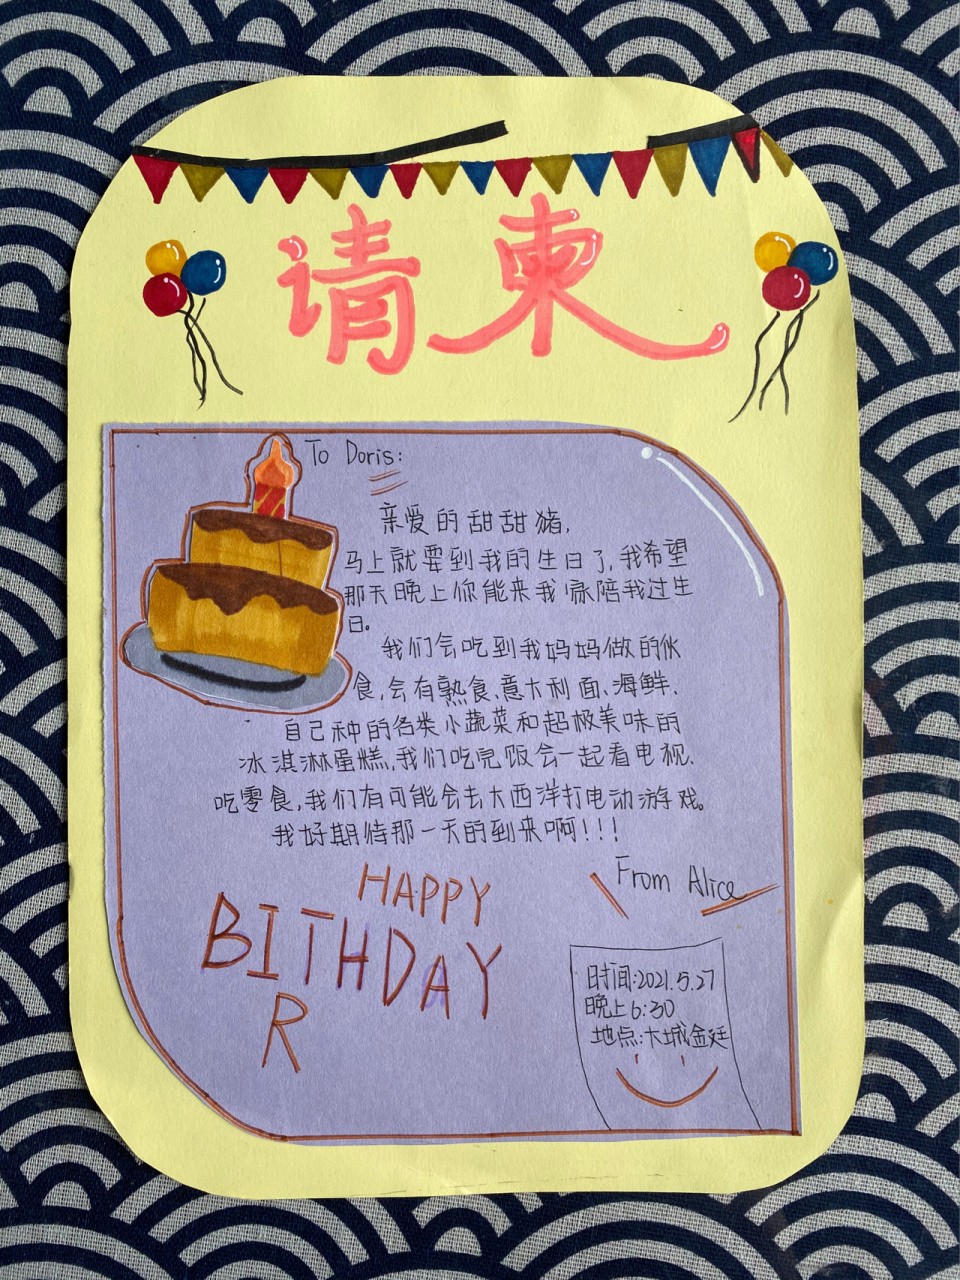 请柬
To Doris:
亲爱的甜甜猪,
马上就要到我的生日了,我希望
那天晚上你能来我家陪我过生
日。
我们会吃到我妈妈做的伙
食,会有熟食、意大利面、海鲜、
自己种的各类小蔬菜和超极美味的
冰淇淋蛋糕,我们吃完饭会一起看电视、
吃零食,我们有可能会去大西洋打电动游戏。
我好期待那一天的到来啊!!!
From Alice
HAPPY
BITHDAY
R
时间:2021.5.27
晚上6:30
地点:大城金廷